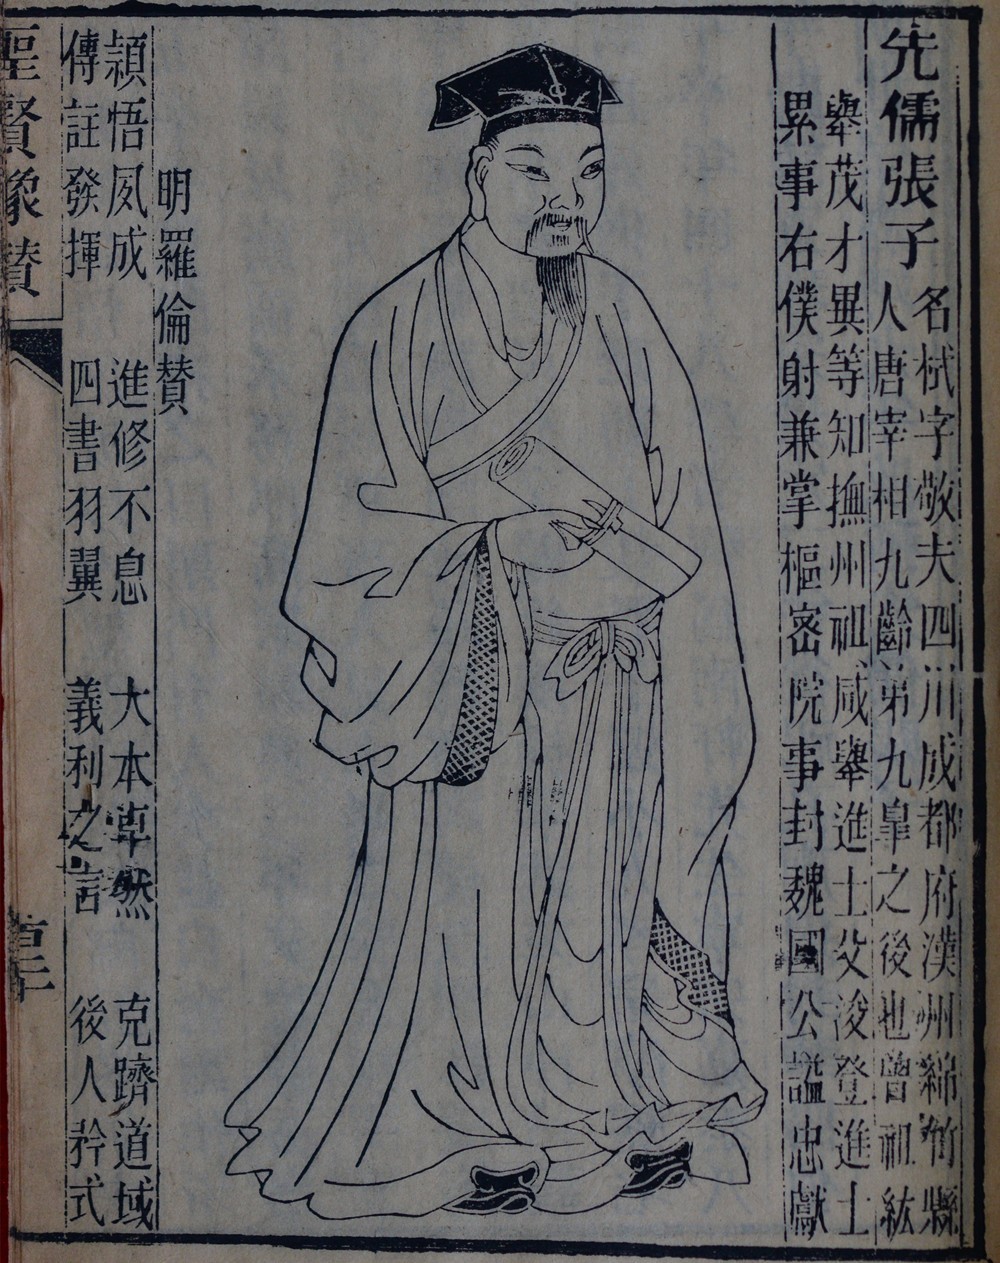 先儒張子
名栻字敬夫四川成都府漢州綿竹縣
人唐宰相九齡弟九臯之後也曾祖紘
舉茂才異等知撫州祖咸舉進士父浚登進士
累事右僕射兼掌樞密院事封魏國公諡忠獻
明羅倫贊
頴悟夙成 進修不息 大本卓然 克躋道域
傳註發揮 四書羽翼 義利之言 後人矜式
聖賢像贊